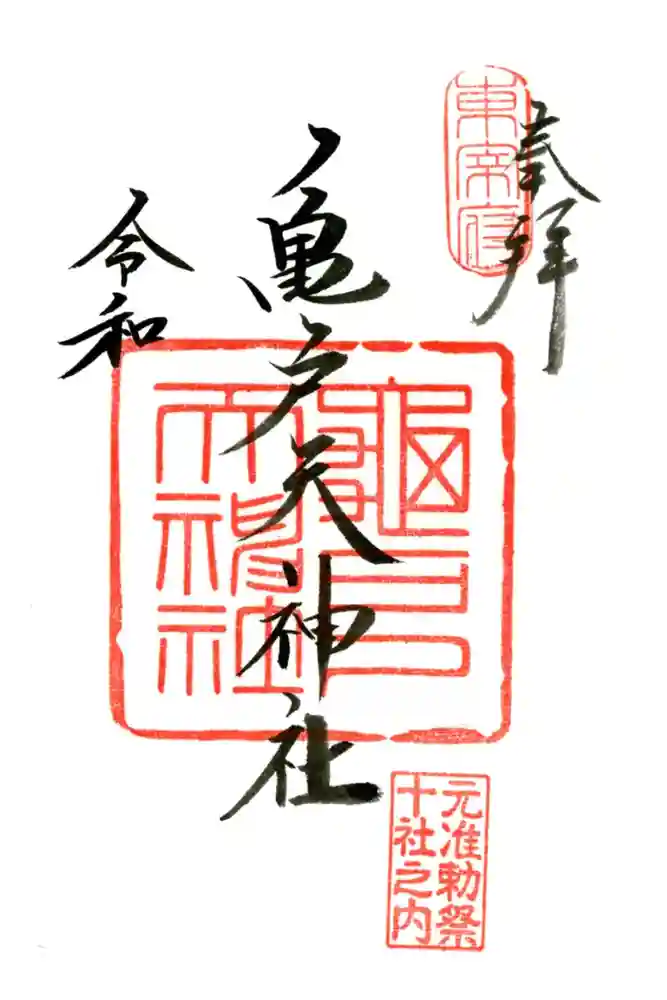 奉拝
東宰府
亀戸天神社
亀戸天神社
令和
元准勅祭
十社之内